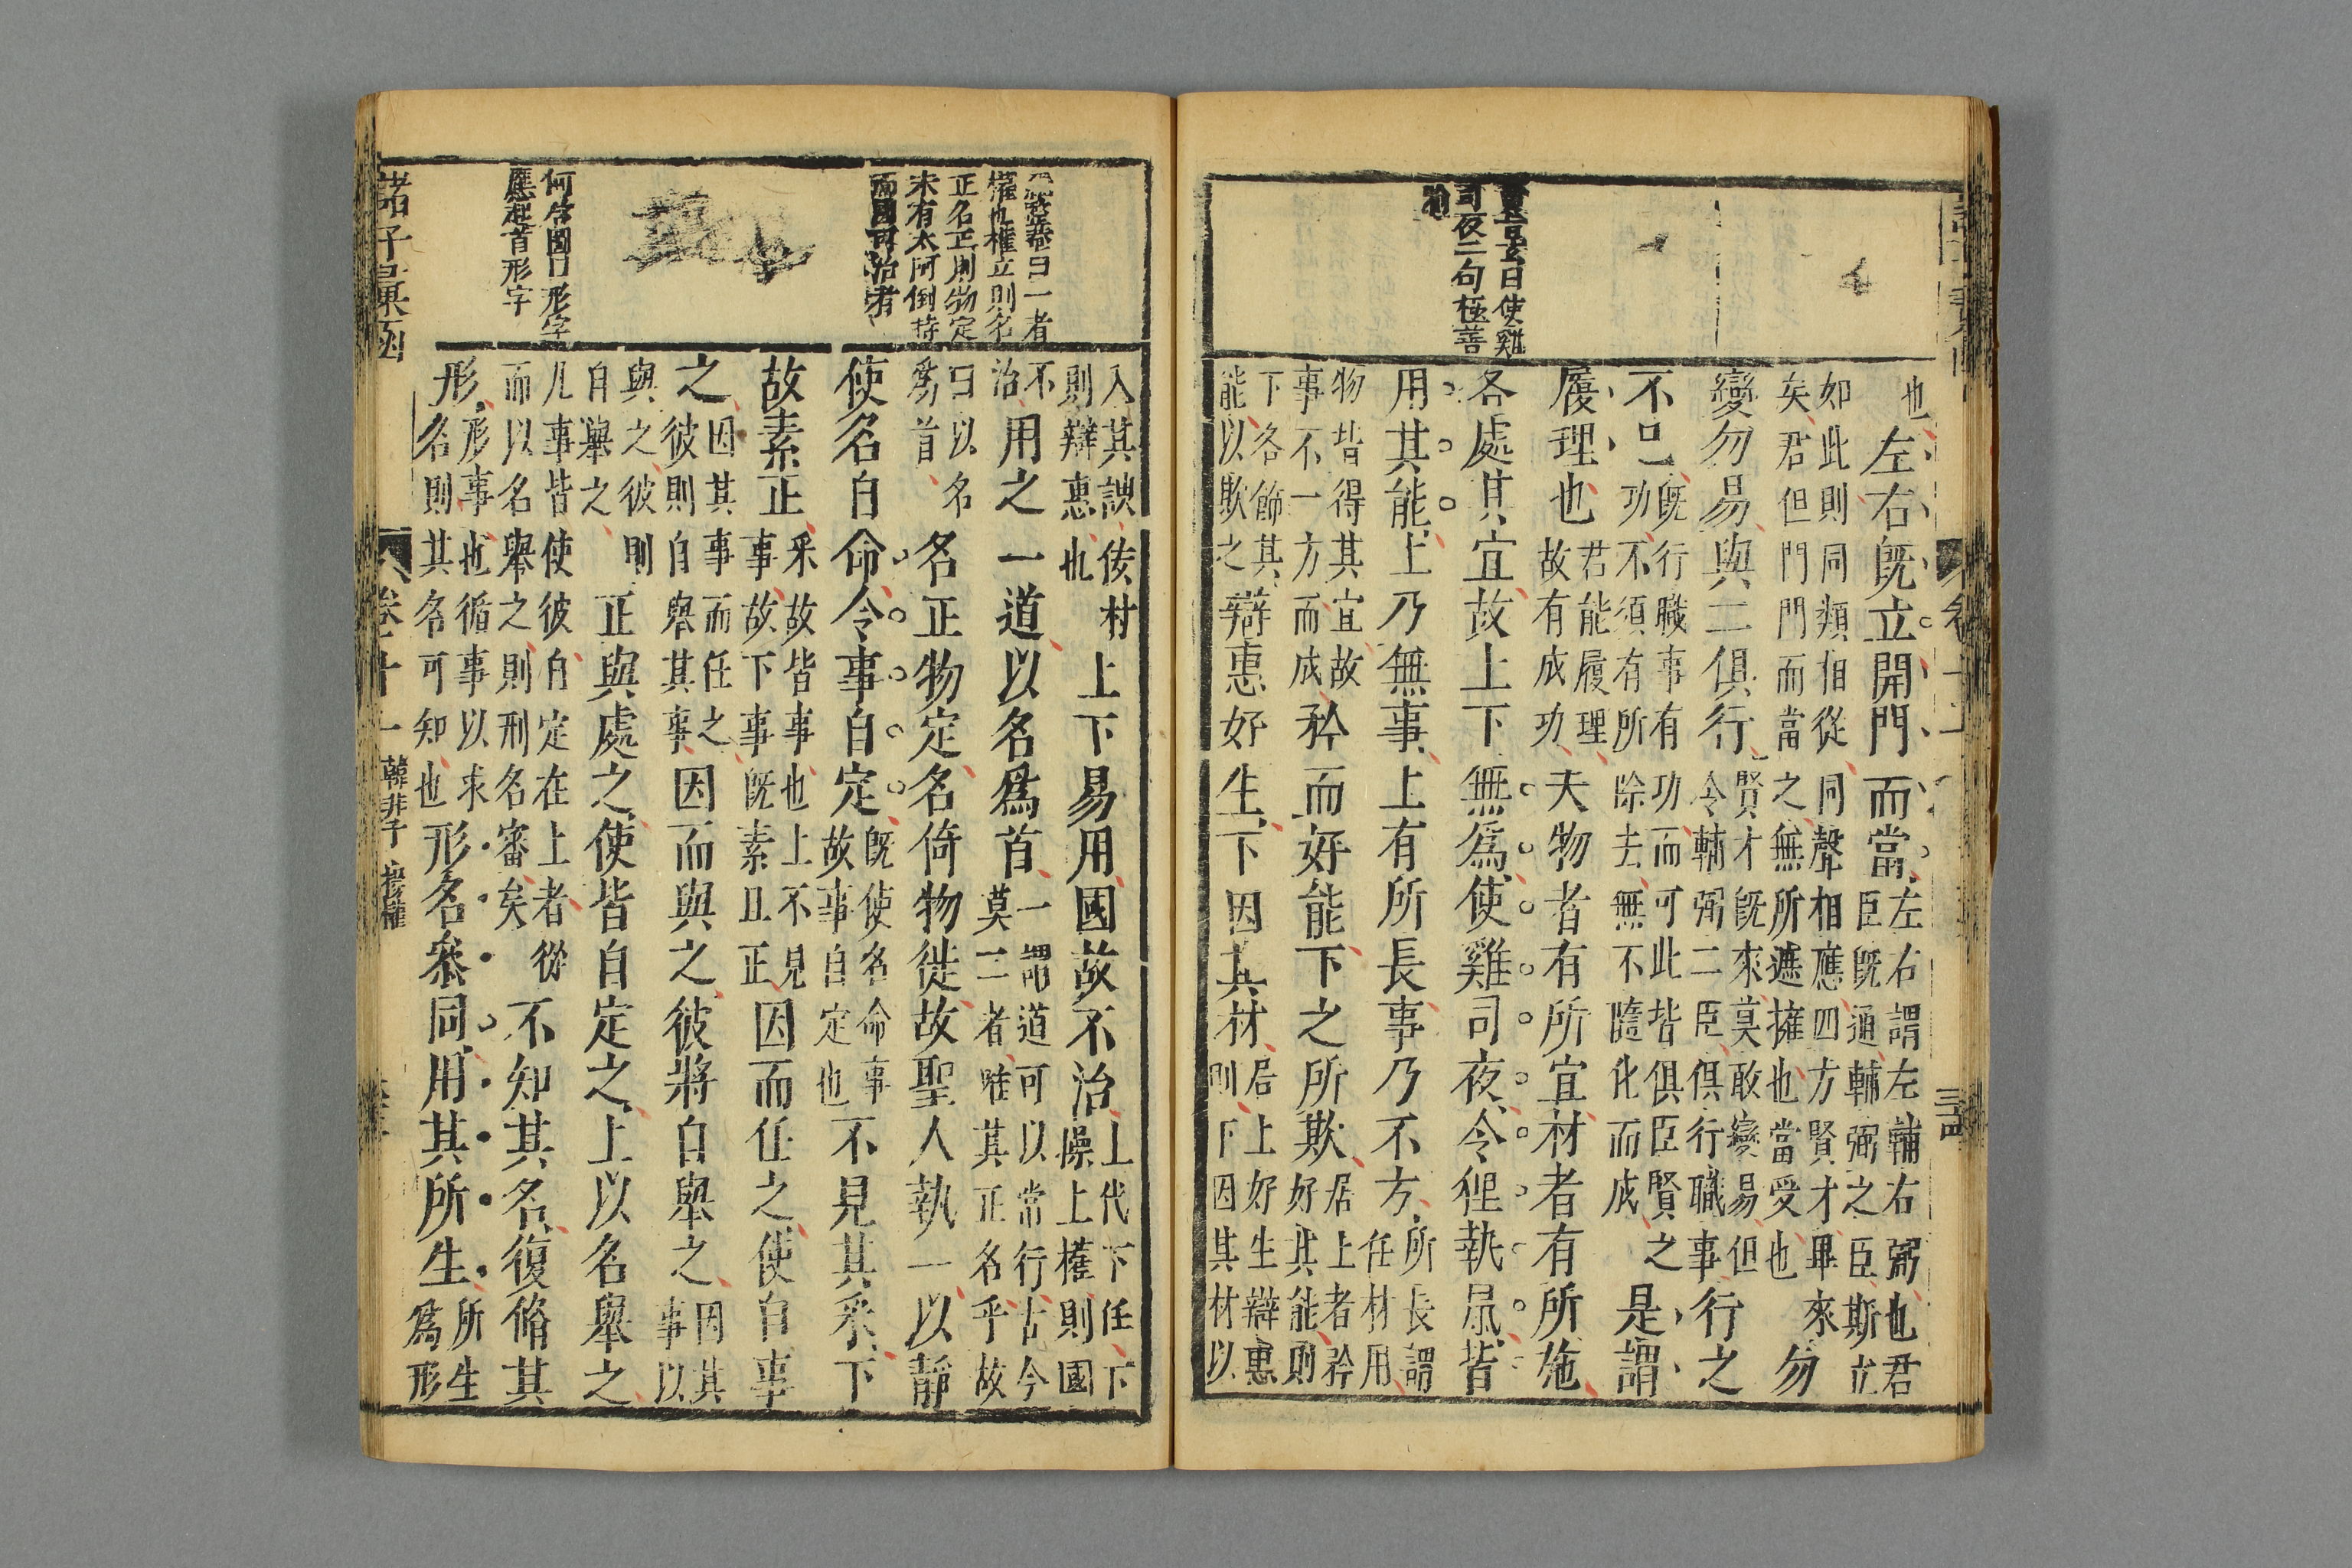 使雞
司夜二句極善
也左右既立開門而當左右謂左輔右弼也君
臣既通輔弼之臣斯立
如此則同類相從同聲相應四方賢才畢來
矣君但門門而當之無所遮擁也當受也勿
變勿易與二俱行賢才既來莫敢變易但
令輔弼二臣俱行職事行之
不已既行職事有功而可此皆俱臣賢之
功不須有所除去無不隨化而成是謂
履理也君能履理
故有成功夫物者有所宜材者有所施
各處其宜故上下無為使雞司夜令狸執鼠皆
用其能上乃無事上有所長事乃不方所長謂
任材用
物皆得其宜故
事不一方而成矜而好能下之所欺居上者矜
好其能則
下各飾其
能以欺之辯惠好生下因其材居上好生辯惠
則下因其材以
曰一者
權也權立則名
正名正則物定
未有太阿倒持
而國可治者
何含國口形字
應起首形字
入其諛佞村
則辯惠也上下易用國故不治上代下任下
操上權則國
不
治用之一道以名爲首一謂道可以常行古今
莫二者唯其正名乎故
曰以名
爲首名正物定名倚物徙故聖人執一以靜
使名自命令事自定既使名命事
故事自定也不見其采下
故素正采故皆事也上不見
事故下事既素且正因而任之使自事
之因其事而任之
彼則自舉其事因而與之彼將自舉之因其
事以
與之彼則
自舉之正與處之使皆自定之上以名舉之
凡事皆使彼自定在上者從
而以名舉之則刑名審矣不知其名復脩其
形形事也循事以求
名則其名可知也形名叅同用其所生所生
爲形
諸子彙函
卷二十一
韓非子